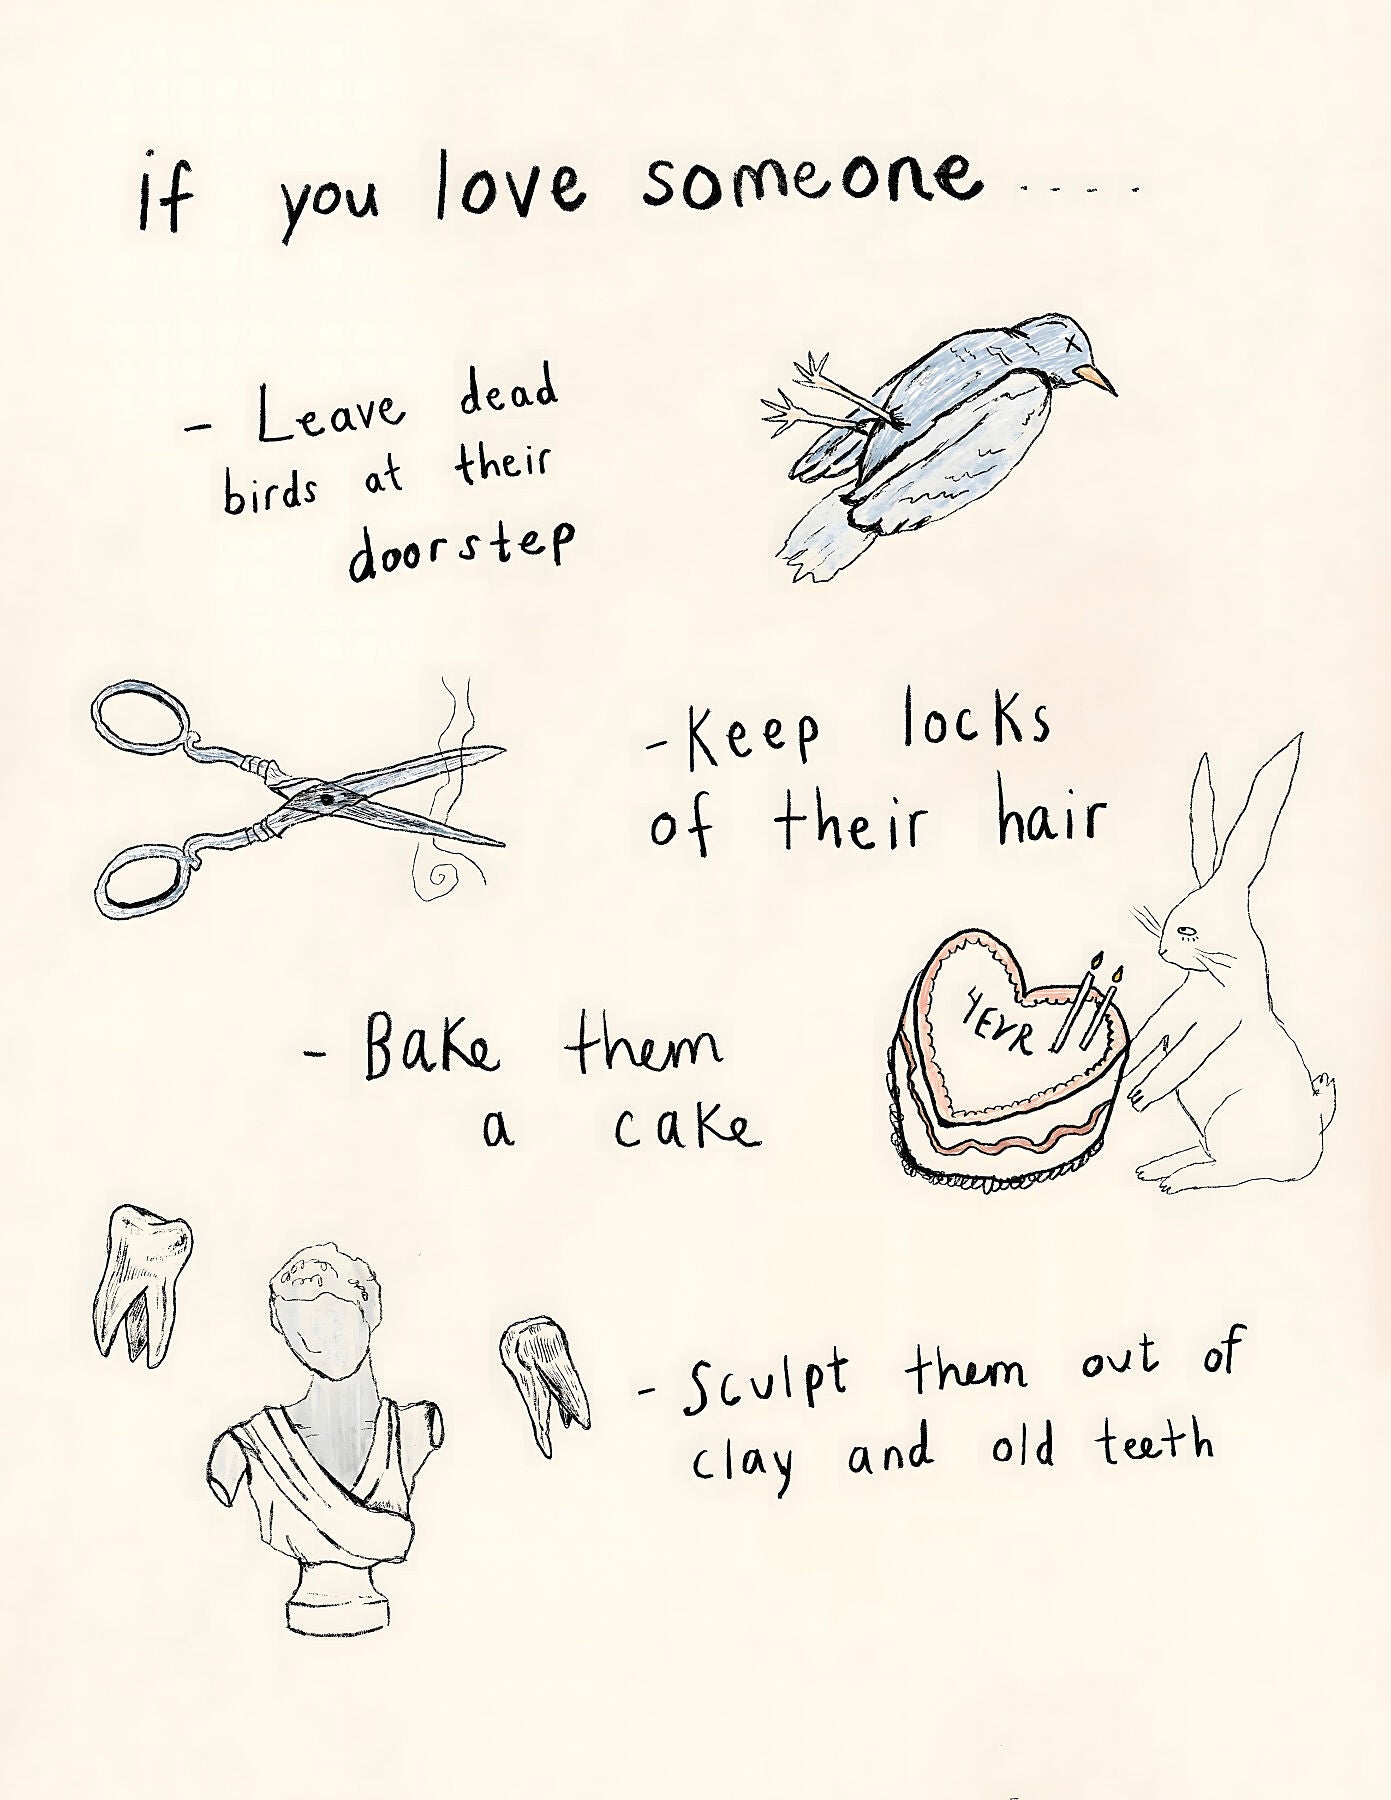 if you love someone ....
- Leave dead
birds at their
doorstep
- Keep locks
of their hair
- Bake them
a cake
YEVR
- Sculpt them out of
clay and old teeth